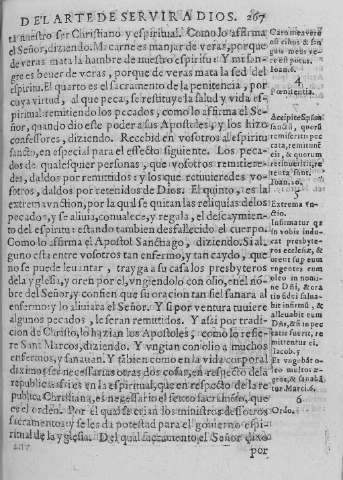 DEL ARTE DE SERVIR A DIOS. 267
ta nuestro ser Christiano y espiritual. Como lo affirma
el Señor, diziendo. Mi carne es manjar de veras, porque
de veras mata la hambre de nuestro espiritu: Y mi san-
gre es beuer de veras, porque de veras mata la sed del
espiritu. El quarto es el sacramento de la penitencia, por
cuya virtud, al que peca, se restituye la salud y vida es-
piritual remitiendo los pecados, como lo affirma el Se-
ñor, quando dio este poder a sus Apostoles, y los hizo
confessores, diziendo. Recebid en vosotros al espiritu
sancto, en especial para el effecto siguiente. Los peca-
dos de qualesquer personas, que vosotros remitiere-
des, daldos por remitidos: y los que retuuieredes vo-
sotros, daldos por retenidos de Dios. El quinto, es la
extrema vnction, por la qual se quitan las reliquias delos
pecados, y se aliuia, conualece, y regala, el descaymien-
to del espiritu: estando tambien desfallecido el cuerpo.
Como lo affirma el Apostol Sanctiago, diziendo. Si al-
guno esta entre vosotros tan enfermo, y tan caydo, que
no se puede leuantar, trayga a su casa los presbyteros
dela yglesia, y oren por el, vngiendolo con olio, en el nó-
bre del Señor, y confien que su oracion tan fiel sanara al
enfermo y lo aliuiara el Señor. Y si por ventura tuuiere
algunos pecados, le seran remitidos. Y assi por tradi-
cion de Christo, lo hazian los Apostoles, como lo refie-
re Sant Marcos, diziendo. Y vngian con olio a muchos
enfermos, y sanauan. Y tābien como en la vida corporal
diximos ser necessarias otras dos cosas, en respecto dela
republica: assi es en la espiritual, que en respecto de la re
publica Christiana, es necessario el sexto sacramēto, que
es el orden. Por el qual se crian los ministros destotros
sacramentos: y se les da potestad para el gouierno espi-
ritual de la yglesia. Del qual sacramento el Señor dixo
por
Caro mea verè
est cibus & san
guis meus ve-
rè est potus.
Ioan. 6.
4
Pœnitentia.
Accipite Spm
sanctũ, quorũ
remiseritis pec
cata, remittun
tur eis, & quorum
retinueritis, re
tenta sunt.
Ioan. 20.
5
Extrema vn-
ctio.
Infirmatur quis
in vobis, indu-
cat presbyte-
ros ecclesiæ, &
orent super eum
vngentes eum
oleo in nomi-
ne Dñi, & ora
tio fidei salua-
bit infirmũ, &
alleuiabit eum
Dñs, & si in pec
catis fuerit, re
mittentur ei.
Iacob. 5
Et vngebāt o-
leo multos æ-
gros, & sanabā
tur Marci. 6.
6
Ordo.